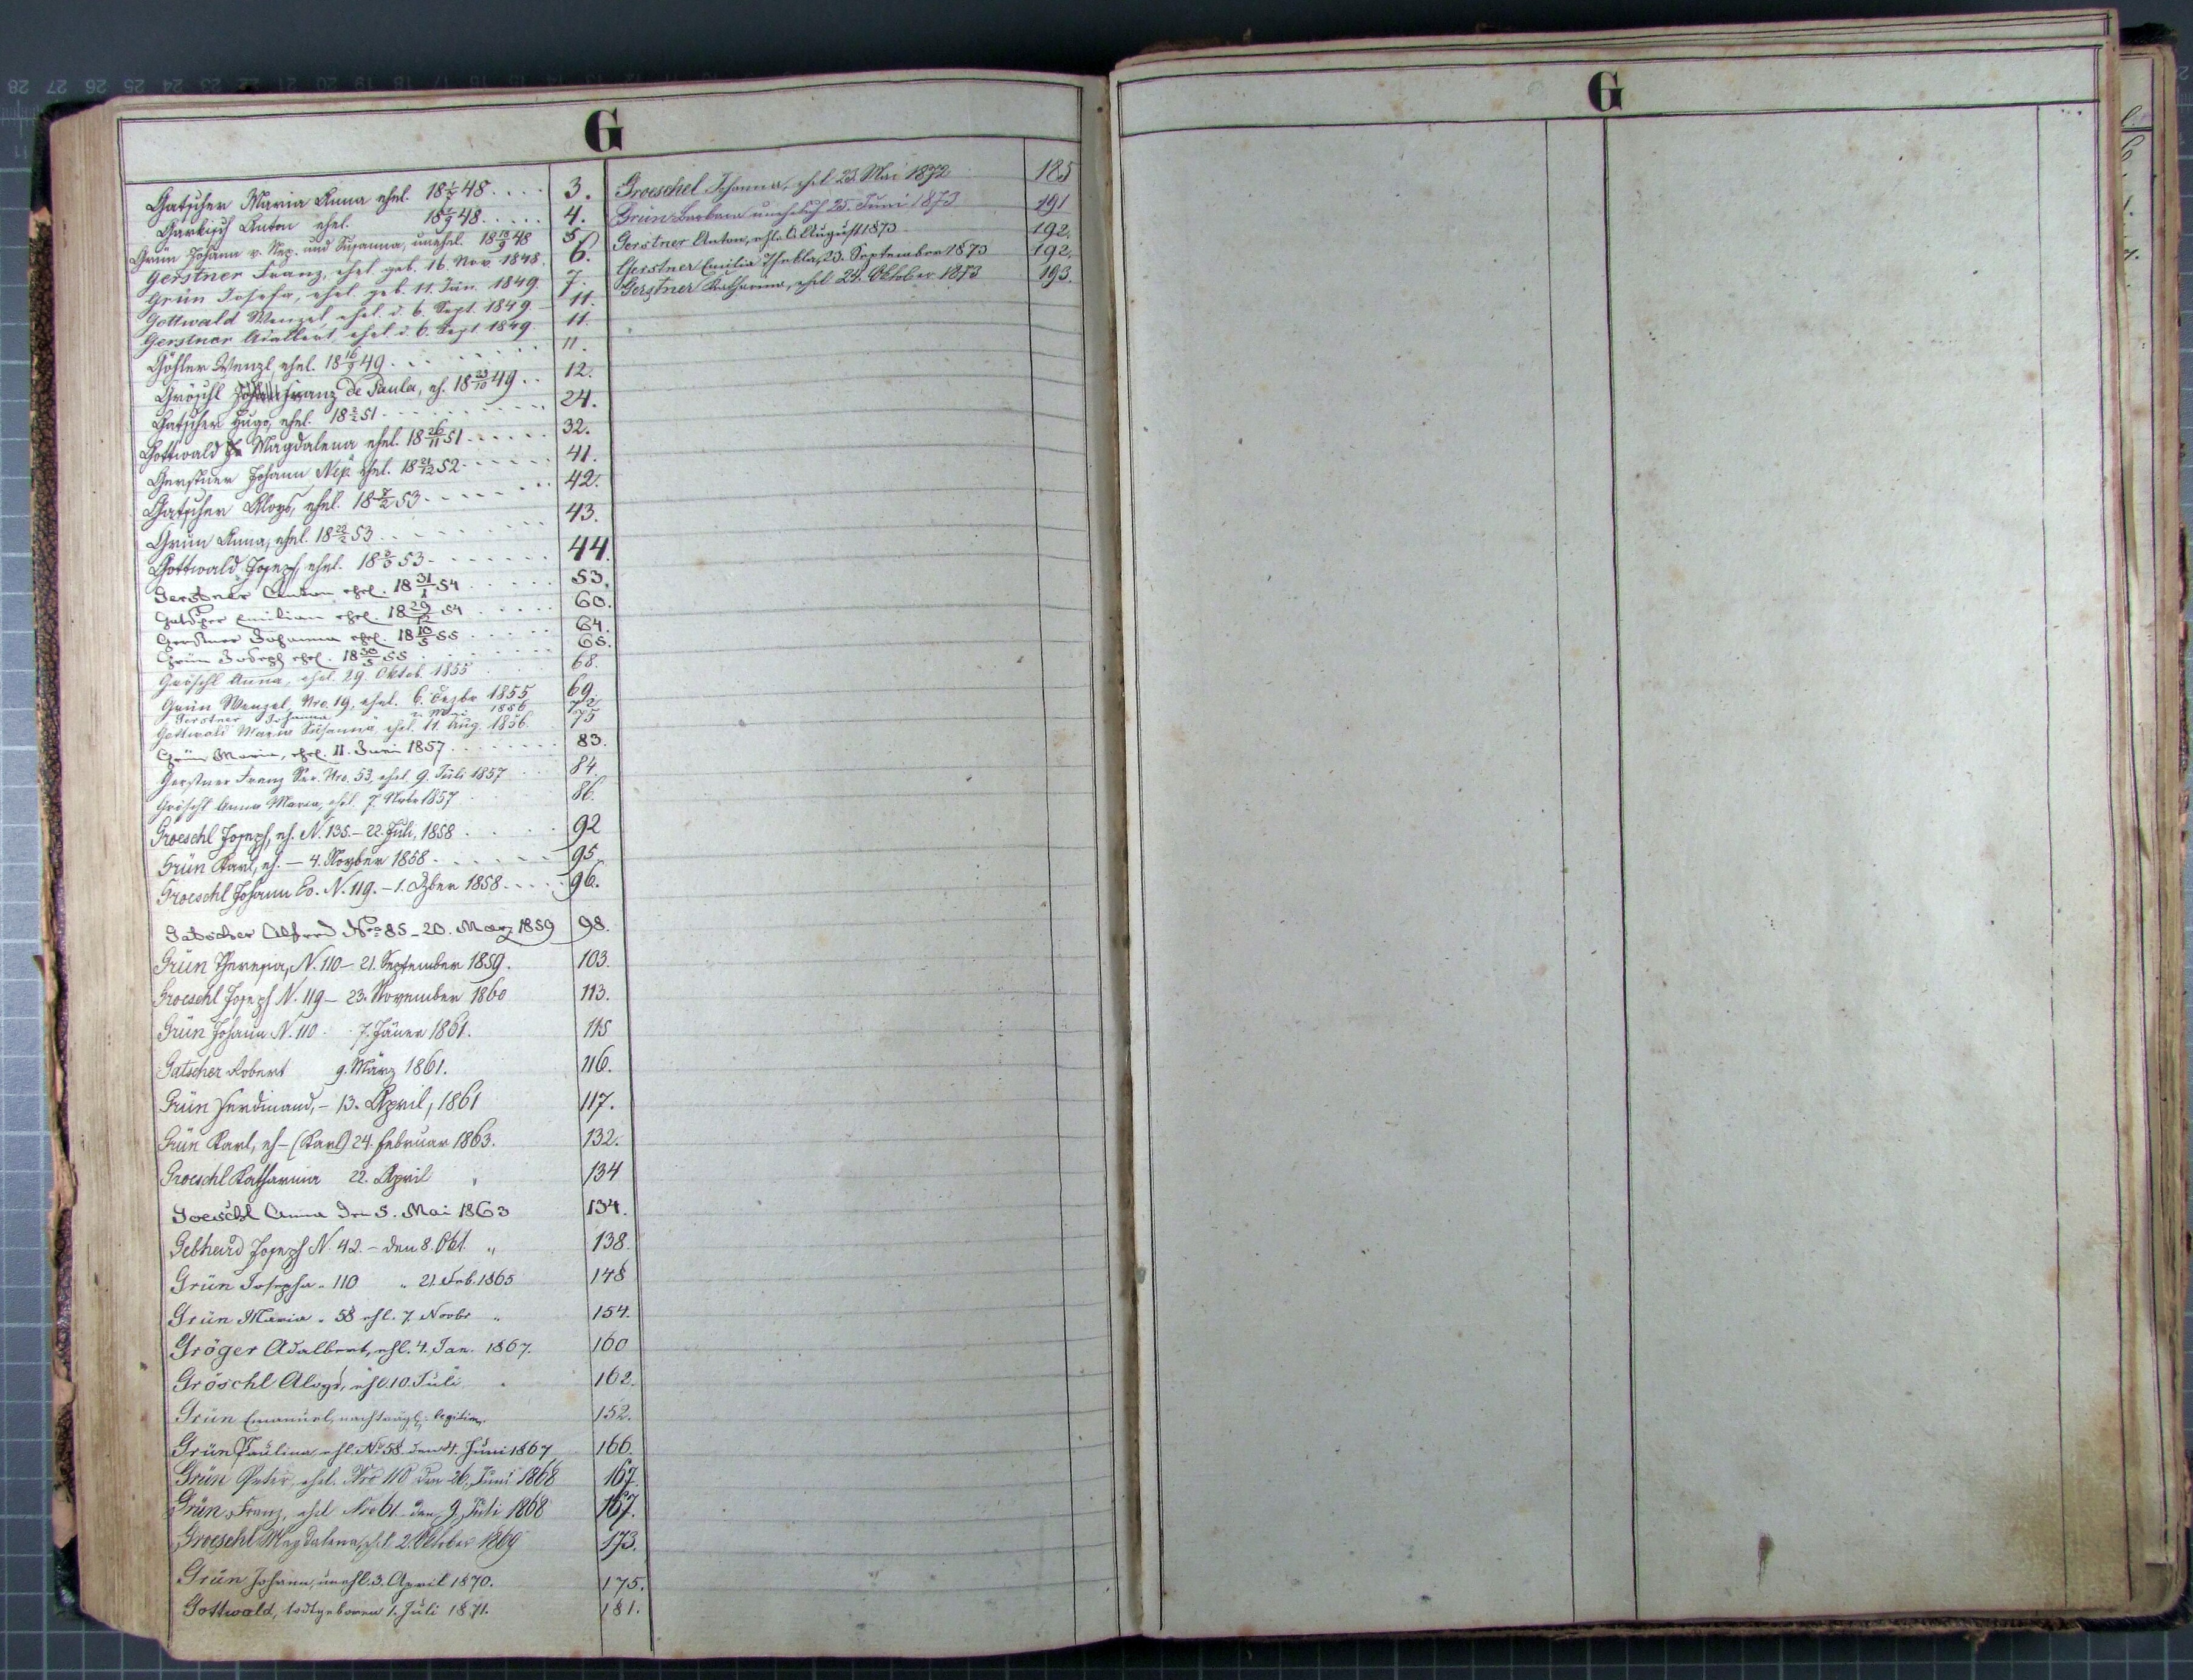 G
Gatscher Maria Anna ehel. 18 48 . . . . 3.
Garkisch Anton ehel. 18 48 . . . . . 4.
Grün Johann v. Nep. und Susanna, unehel. 18 48 5.
Gerstner Franz, ehel. geb. 16. Nov. 1848. 6.
Grün Josefa, ehel. geb. 11. Jän. 1849. 7.
Gottwald Wenzel ehel. d. 6. Sept. 1849. 11.
Gerstner Adalbert, ehel. d. 6. Sept. 1849. 11.
Göhler Wenzl, ehel. 18 16/9 49 . . . 11.
Gröschl Franz de Paula, eh. 18 23/10 49 . . 12.
Gatscher Hugo, ehel. 18 51 . . . . 24.
Gottwald Magdalena ehel. 18 26/11 51 . . . . . 32.
Gerstner Johann Nep. ehel. 18 21/12 52 . . . . . 41.
Gatscher Aloys, ehel. 18 7/2 53 . . . . . 42.
Grün Anna, ehel. 18 22/2 53 . . . . 43.
Gottwald Joseph, ehel. 18 53 . . . . . 44.
Gerstner Anton ehel. 18 31/1 54 . . . . 53.
Gatscher Emilian ehel. 18 29/12 54 . . . . . 60.
Gerstner Johanna ehel. 18 10/5 55 . . . . . 64.
Grün Joseph ehel. 18 30/5 55 . . . . . 65.
Gröschl Anna, ehel. 29. Oktob. 1855 68.
Grün Wenzel, Nro. 19, ehel. 6. Dezbr 1855 69.
Gerstner Johanna Mai 1856 72
Gottwald Maria Susanna ehel. 11. Aug. 1856. 75
Grün Maria, ehel. 11. Juni 1857 . . . . . 83.
Gerstner Franz Ser. Nro. 53, ehel. 9. Juli 1857 . . 84.
Gröschl Anna Maria, ehel. 7. Novbr 1857 86.
Groeschl Joseph, eh. N. 135. – 22. Juli, 1858 . . . . . 92
Grün Karl, eh. – 4. Novber 1858 . . . . . . 95.
Groeschl Johann Ev. N. 119. – 1. Dzber 1858 . . . . 96.
Gatscher Alfred Nro 85 – 20. März 1859 98.
Grün Theresia, N. 110 – 21. September 1859. 103.
Groeschl Joseph N. 119 – 23. November 1860 113.
Grün Johann N. 110 . . 7. Jäner 1861. 115
Gatscher Robert 9. März 1861. 116.
Grün Ferdinand, – 13. April, 1861 117.
Grün Karl, eh – (Karl) 24. Februar 1863. 132.
Groeschl Katharina 22. April " 134
Goeschl Anna den 5. Mai 1863 134.
Gebhard Joseph N. 42. – den 8. Okt. " 138.
Grün Josepha " 110 " 21. Feb. 1865 148
Grün Maria " 58 ehl. 7. Novbr " 154.
Gröger Adalbert, ehl. 4. Jan. 1867. 160
Gröschl Aloys, ehl. 10. Juli " 162.
Grün Emanuel, nachträgl. legitim. 152.
Grün Paulina, ehl. No 58. den 4. Juni 1867 166.
Grün Peter, ehel. Nro 110 den 26. Juni 1868 167.
Grün Franz, ehel Nro 61 den 9. Juli 1868 167.
Groeschl Magdalena, ehl. 2. Oktober 1869 173.
Grün Johann, unehl. 3. April 1870. 175.
Gottwald, todtgeboren 1. Juli 1871. 181.
Groeschel Johanna, ehel 23. Mai 1872 185
Grün Barbara unehelich 25. Juni 1873 191
Gerstner Anton, ehl. 6. August 1873 192.
Gerstner Emilia Thekla, 23. September 1873 192.
Gerstner Katharina, ehel 24. Oktober 1873 193.
G